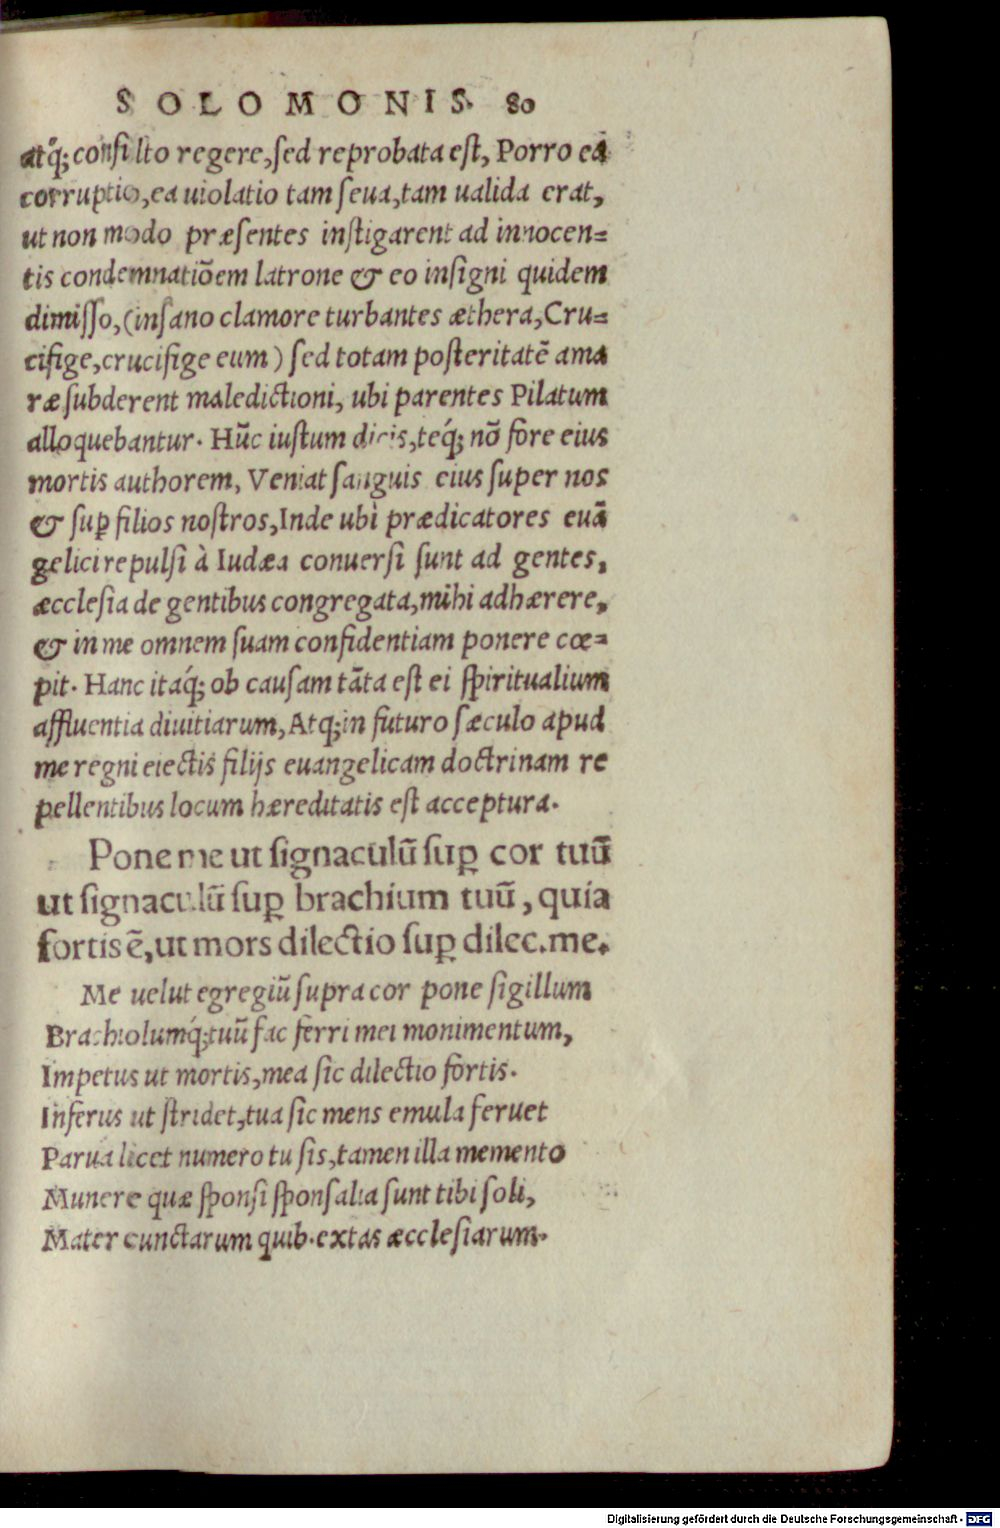 SOLOMONIS. 80
atq́; consilto regere, sed reprobata est, Porro ea
corruptio, ea uiolatio tam seua, tam ualida erat,
ut non modo præsentes instigarent ad innocen=
tis condemnatiõem latrone & eo insigni quidem
dimisso, (insano clamore turbantes æthera, Cru=
cifige, crucifige eum) sed totam posteritatẽ ama
ræ subderent maledictioni, ubi parentes Pilatum
alloquebantur. Hũc iustum dicis, teq́; nõ fore eius
mortis authorem, Veniat sanguis eius super nos
& suꝑ filios nostros, Inde ubi prædicatores euã
gelici repulsi à Iudæa conuersi sunt ad gentes,
æcclesia de gentibus congregata, mihi adhærere,
& in me omnem suam confidentiam ponere cœ=
pit. Hanc itaq́; ob causam tãta est ei spiritualium
affluentia diuitiarum, Atq; in futuro sæculo apud
me regni eiectis filijs euangelicam doctrinam re
pellentibus locum hæreditatis est acceptura.
Pone me ut signaculũ suꝑ cor tuũ
ut signaculũ suꝑ brachium tuũ, quia
fortis ẽ, ut mors dilectio suꝑ dilec. me.
Me uelut egregiũ supra cor pone sigillum
Brachiolumq́; tuũ fac ferri mei monimentum,
Impetus ut mortis, mea sic dilectio fortis.
Inferus ut stridet, tua sic mens emula feruet
Parua licet numero tu sis, tamen illa memento
Munere quæ sponsi sponsalia sunt tibi soli,
Mater cunctarum quib. extas æcclesiarum.
Digitalisierung gefördert durch die Deutsche Forschungsgemeinschaft - DFG